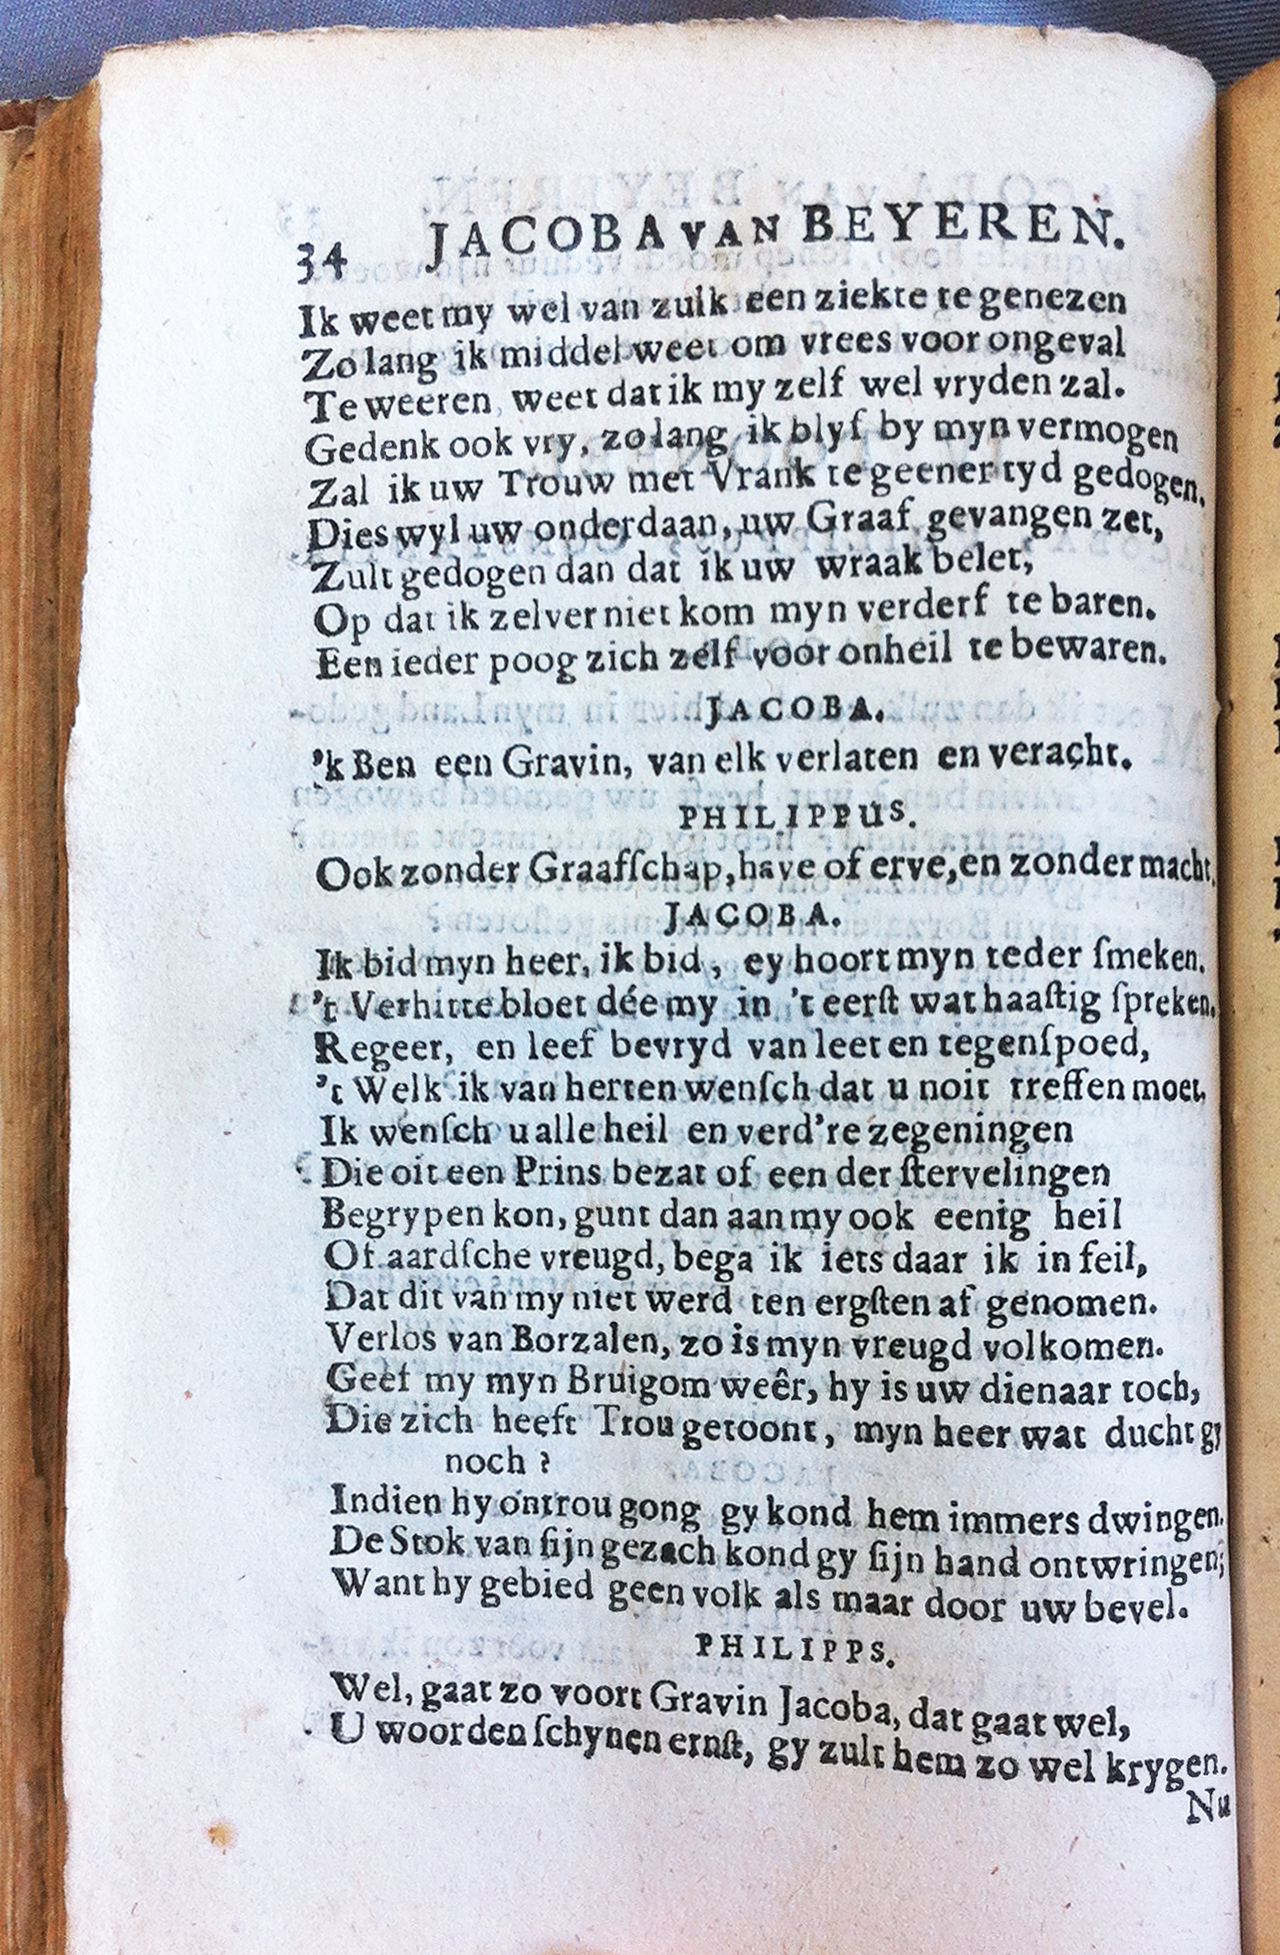 34 JACOBA VAN BEYEREN.
Ik weet my wel van zulk een ziekte te genezen
Zo lang ik middel weet om vrees voor ongeval
Te weeren, weet dat ik my zelf wel vryden zal.
Gedenk ook vry, zo lang ik blyf by myn vermogen
Zal ik uw Trouw met Vrank te geener tyd gedogen.
Dies wyl uw onderdaan, uw Graaf gevangen zet,
Zult gedogen dan dat ik uw wraak belet,
Op dat ik zelver niet kom myn verderf te baren.
Een ieder poog zich zélf voor onheil te bewaren.
JACOBA.
'k Ben een Gravin, van elk verlaten en veracht.
PHILIPPUS.
Ook zonder Graafſchap, have of erve, en zonder macht.
JACOBA.
Ik bid myn heer, ik bid, ey hoort myn teder ſmeken.
't Verhitte bloet dée my in 't eerſt wat haaſtig ſpreken.
Regeer, en leef bevryd van leet en tegenſpoed,
't Welk ik van herten wenſch dat u noit treffen moet.
Ik wenſch u alle heil en verd're zegeningen
Die oit een Prins bezat of een der ſtervelingen
Begrypen kon, gunt dan aan my ook eenig heil
Of aardſche vreugd, bega ik iets daar ik in feil,
Dat dit van my niet werd ten ergſten af genomen.
Verlos van Borzalen, zo is myn vreugd volkomen.
Geef my myn Bruigom weêr, hy is uw dienaar toch,
Die zich heeft Trou getoont, myn heer wat ducht gy
noch?
Indien hy ontrou gong gy kond hem immers dwingen.
De Stok van ſijn gezach kond gy ſijn hand ontwringen;
Want hy gebied geen volk als maar door uw bevel.
PHILIPPS.
Wel, gaat zo voort Gravin Jacoba, dat gaat wel,
U woorden ſchynen ernſt, gy zult hem zo wel krygen.
Nu